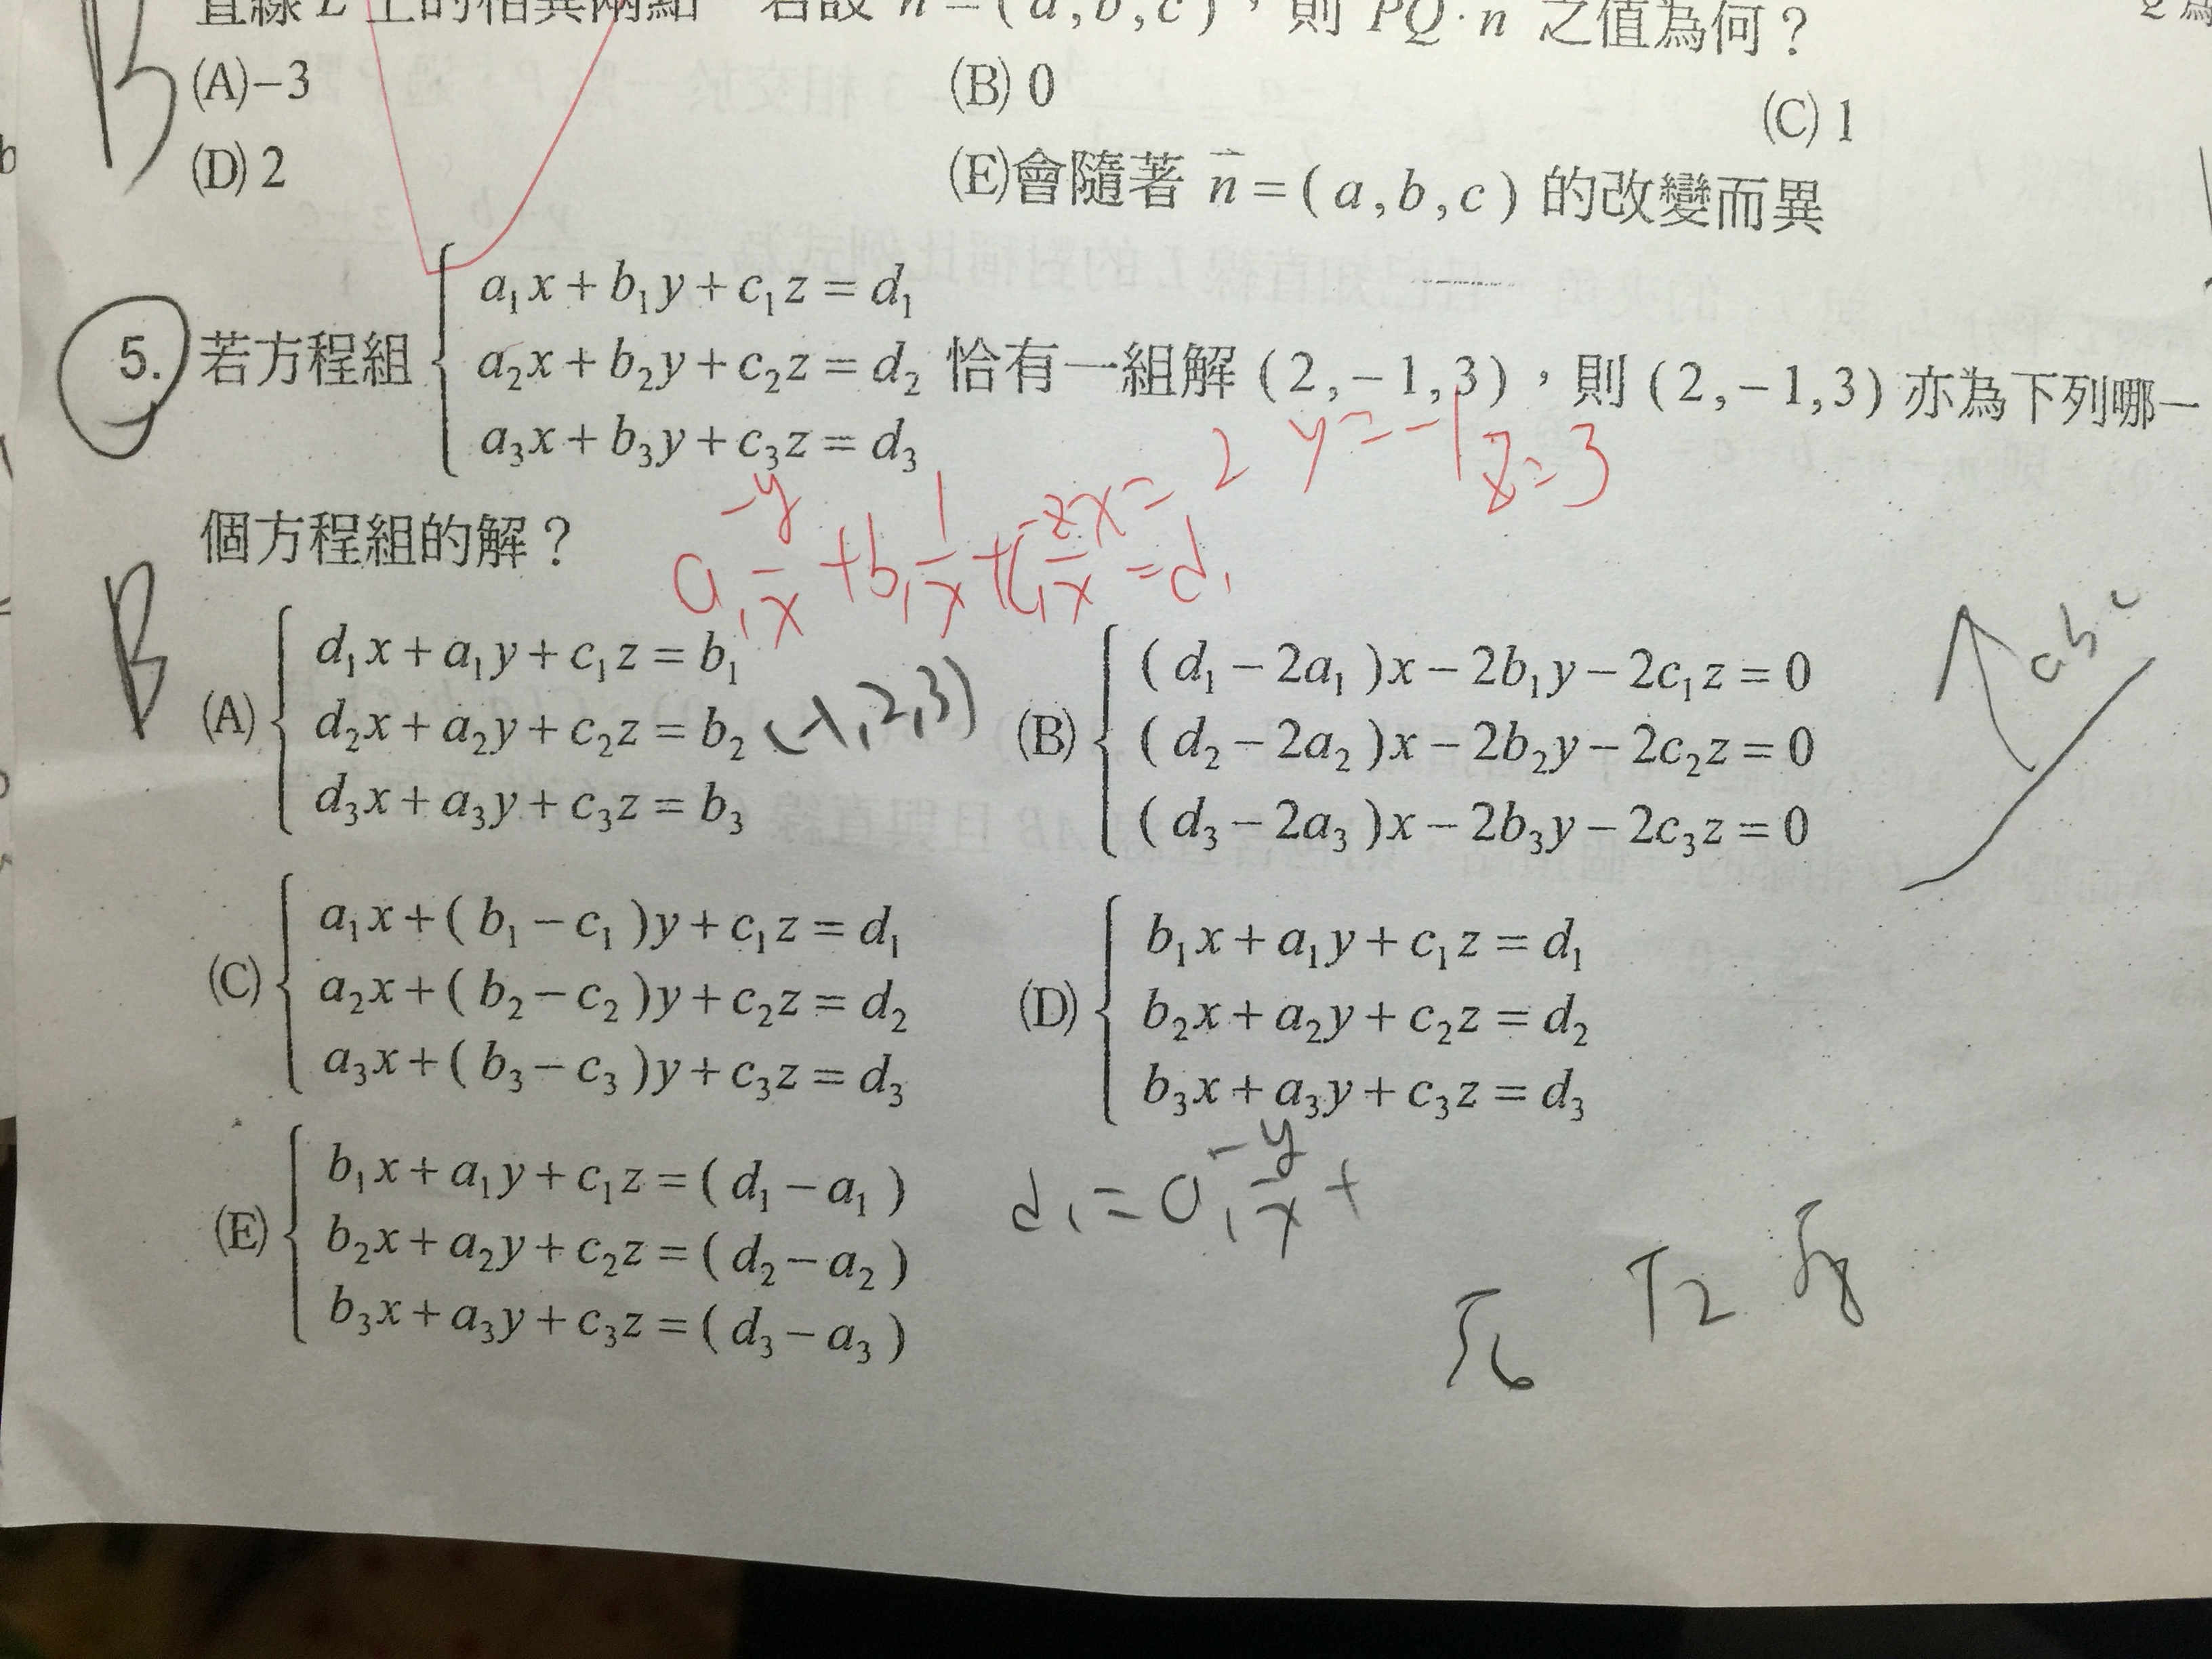 直線 L 上的相異兩點 若設 n = ( a , b , c ) , 則 PQ · n 之值為何?
(A) −3 (B) 0 (C) 1
(D) 2 (E) 會隨著 n = ( a , b , c ) 的改變而異
a₁x + b₁y + c₁z = d₁
5. 若方程組 a₂x + b₂y + c₂z = d₂ 恰有一組解 ( 2 , −1 , 3 ) , 則 ( 2 , −1 , 3 ) 亦為下列哪一
a₃x + b₃y + c₃z = d₃
x = 2 y = -1 z = 3
個方程組的解?
a₁ -y/x + b₁ 1/x + c₁ -z/x = d₁
B
d₁x + a₁y + c₁z = b₁
(A) d₂x + a₂y + c₂z = b₂ (-1, 2, 3)
d₃x + a₃y + c₃z = b₃
( d₁ − 2a₁ )x − 2b₁y − 2c₁z = 0
(B) ( d₂ − 2a₂ )x − 2b₂y − 2c₂z = 0
( d₃ − 2a₃ )x − 2b₃y − 2c₃z = 0
a b c
a₁x + ( b₁ − c₁ )y + c₁z = d₁
(C) a₂x + ( b₂ − c₂ )y + c₂z = d₂
a₃x + ( b₃ − c₃ )y + c₃z = d₃
b₁x + a₁y + c₁z = d₁
(D) b₂x + a₂y + c₂z = d₂
b₃x + a₃y + c₃z = d₃
b₁x + a₁y + c₁z = ( d₁ − a₁ )
(E) b₂x + a₂y + c₂z = ( d₂ − a₂ )
b₃x + a₃y + c₃z = ( d₃ − a₃ )
d₁ = a₁ -y/x +